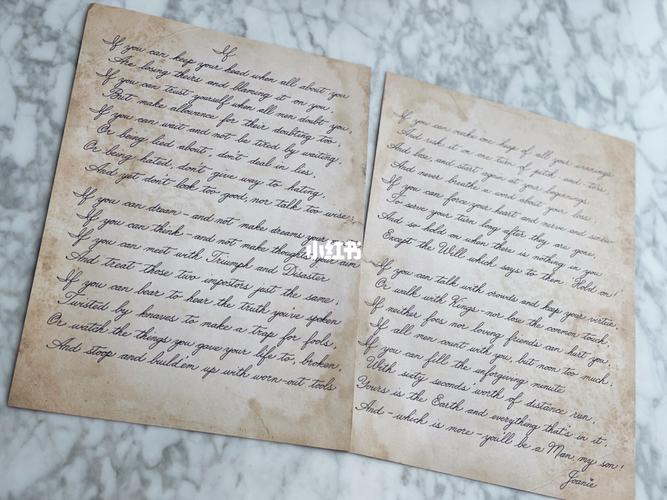 If
If you can keep your head when all about you
Are losing theirs and blaming it on you
If you can trust yourself when all men doubt you,
But make allowance for their doubting too,
If you can wait and not be tired by waiting,
Or being lied about, don't deal in lies,
Or being hated, don't give way to hating,
And yet don't look too good, nor talk too wise:
If you can dream - and not make dreams your
If you can think - and not make thoughts your aim
If you can meet with Triumph and Disaster
And treat those two impostors just the same,
If you can bear to hear the truth you've spoken
Twisted by knaves to make a trap for fools,
Or watch the things you gave your life to, broken,
And stoop and build em up with worn-out tools
小红书
If you can make one heap of all your winnings
And risk it on one turn of pitch-and-toss,
And lose, and start again at your beginnings
And never breathe a word about your loss
If you can force your heart and nerve and sinew
To serve your turn long after they are gone,
And so hold on when there is nothing in you
Except the Will which says to them "Hold on!"
If you can talk with crowds and keep your virtue,
Or walk with Kings - nor lose the common touch,
If neither foes nor loving friends can hurt you,
If all men count with you, but non too much;
If you can fill the unforgiving minute
With sixty seconds' worth of distance run,
Yours is the Earth and everything that's in it,
And - which is more - you'll be a Man, my son!
Joanie